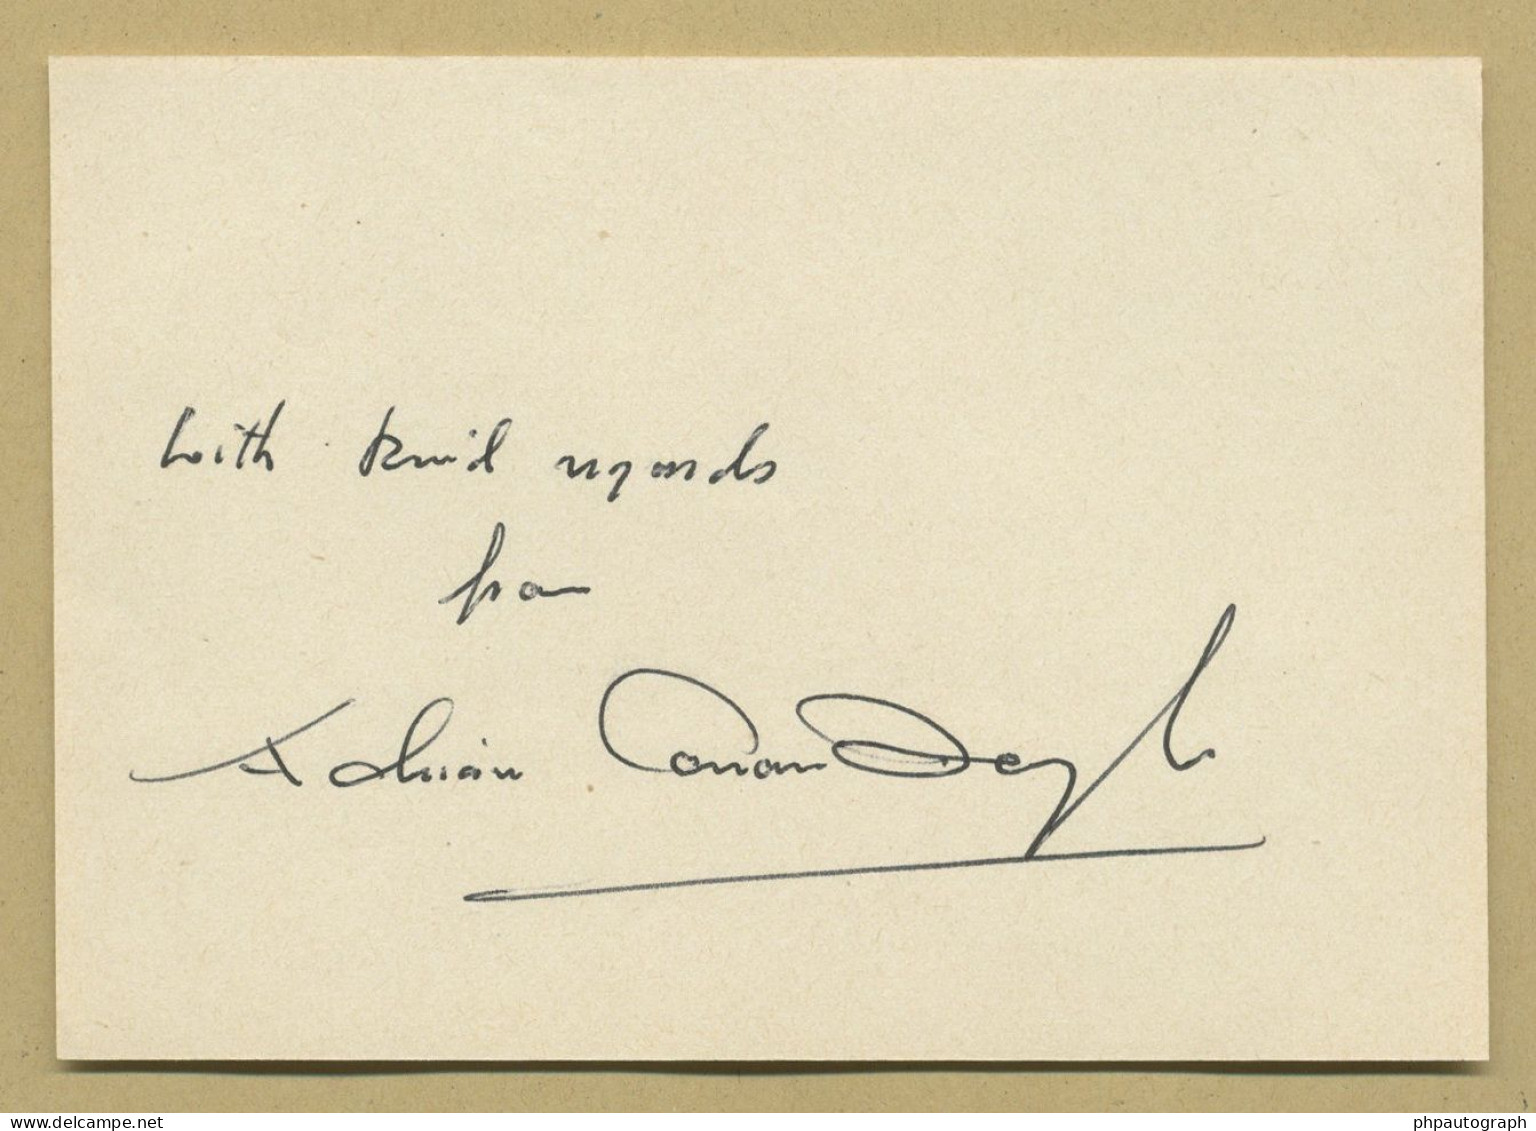 with kind regards
from
Adrian Conan Doyle
www.delcampe.net
phpautograph